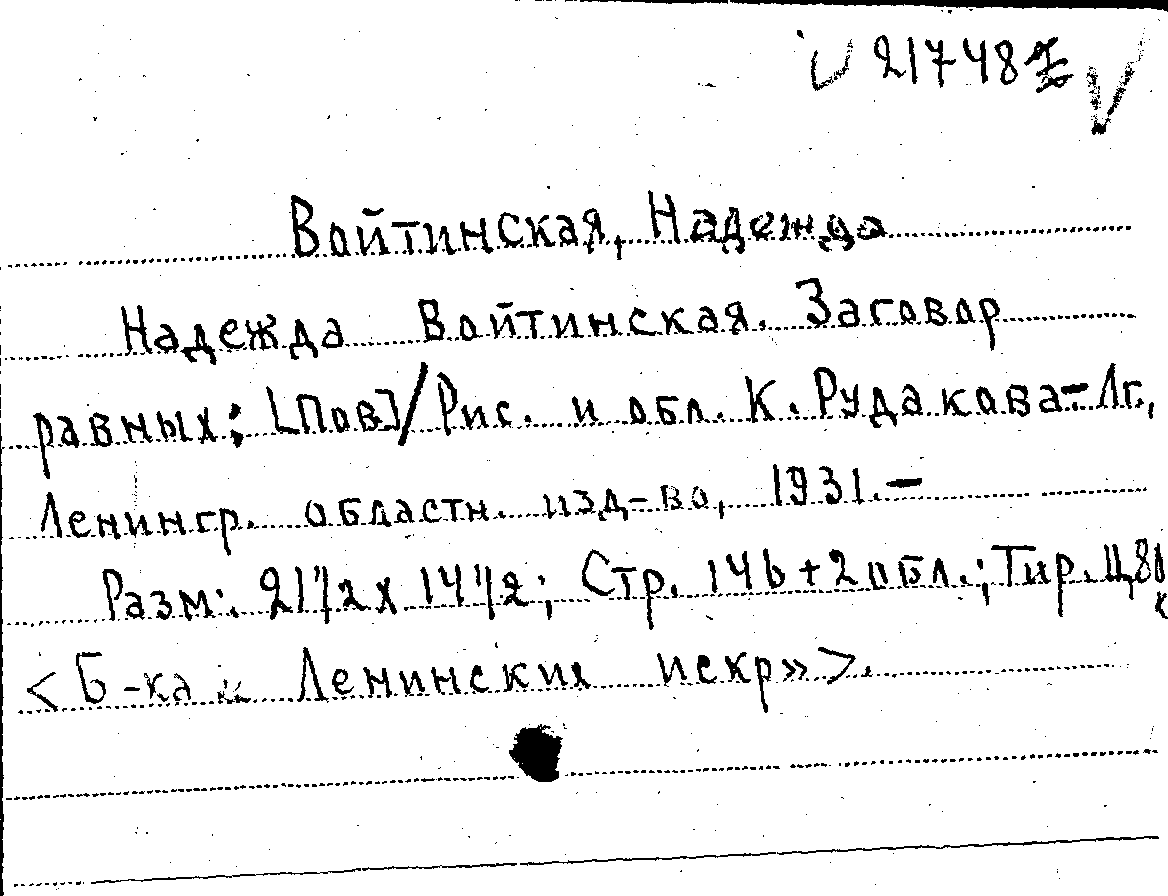 21748
Войтинская, Надежда
Надежда Войтинская. Заговор
равных; [Пов]/Рис. и обл. К. Рудакова-Лг.,
Ленингр. областн. изд-во, 1931.—
Разм: 21½ x 14½; Стр. 146+2 обл.; Тир.
<Б-ка «Ленинских искр»>.